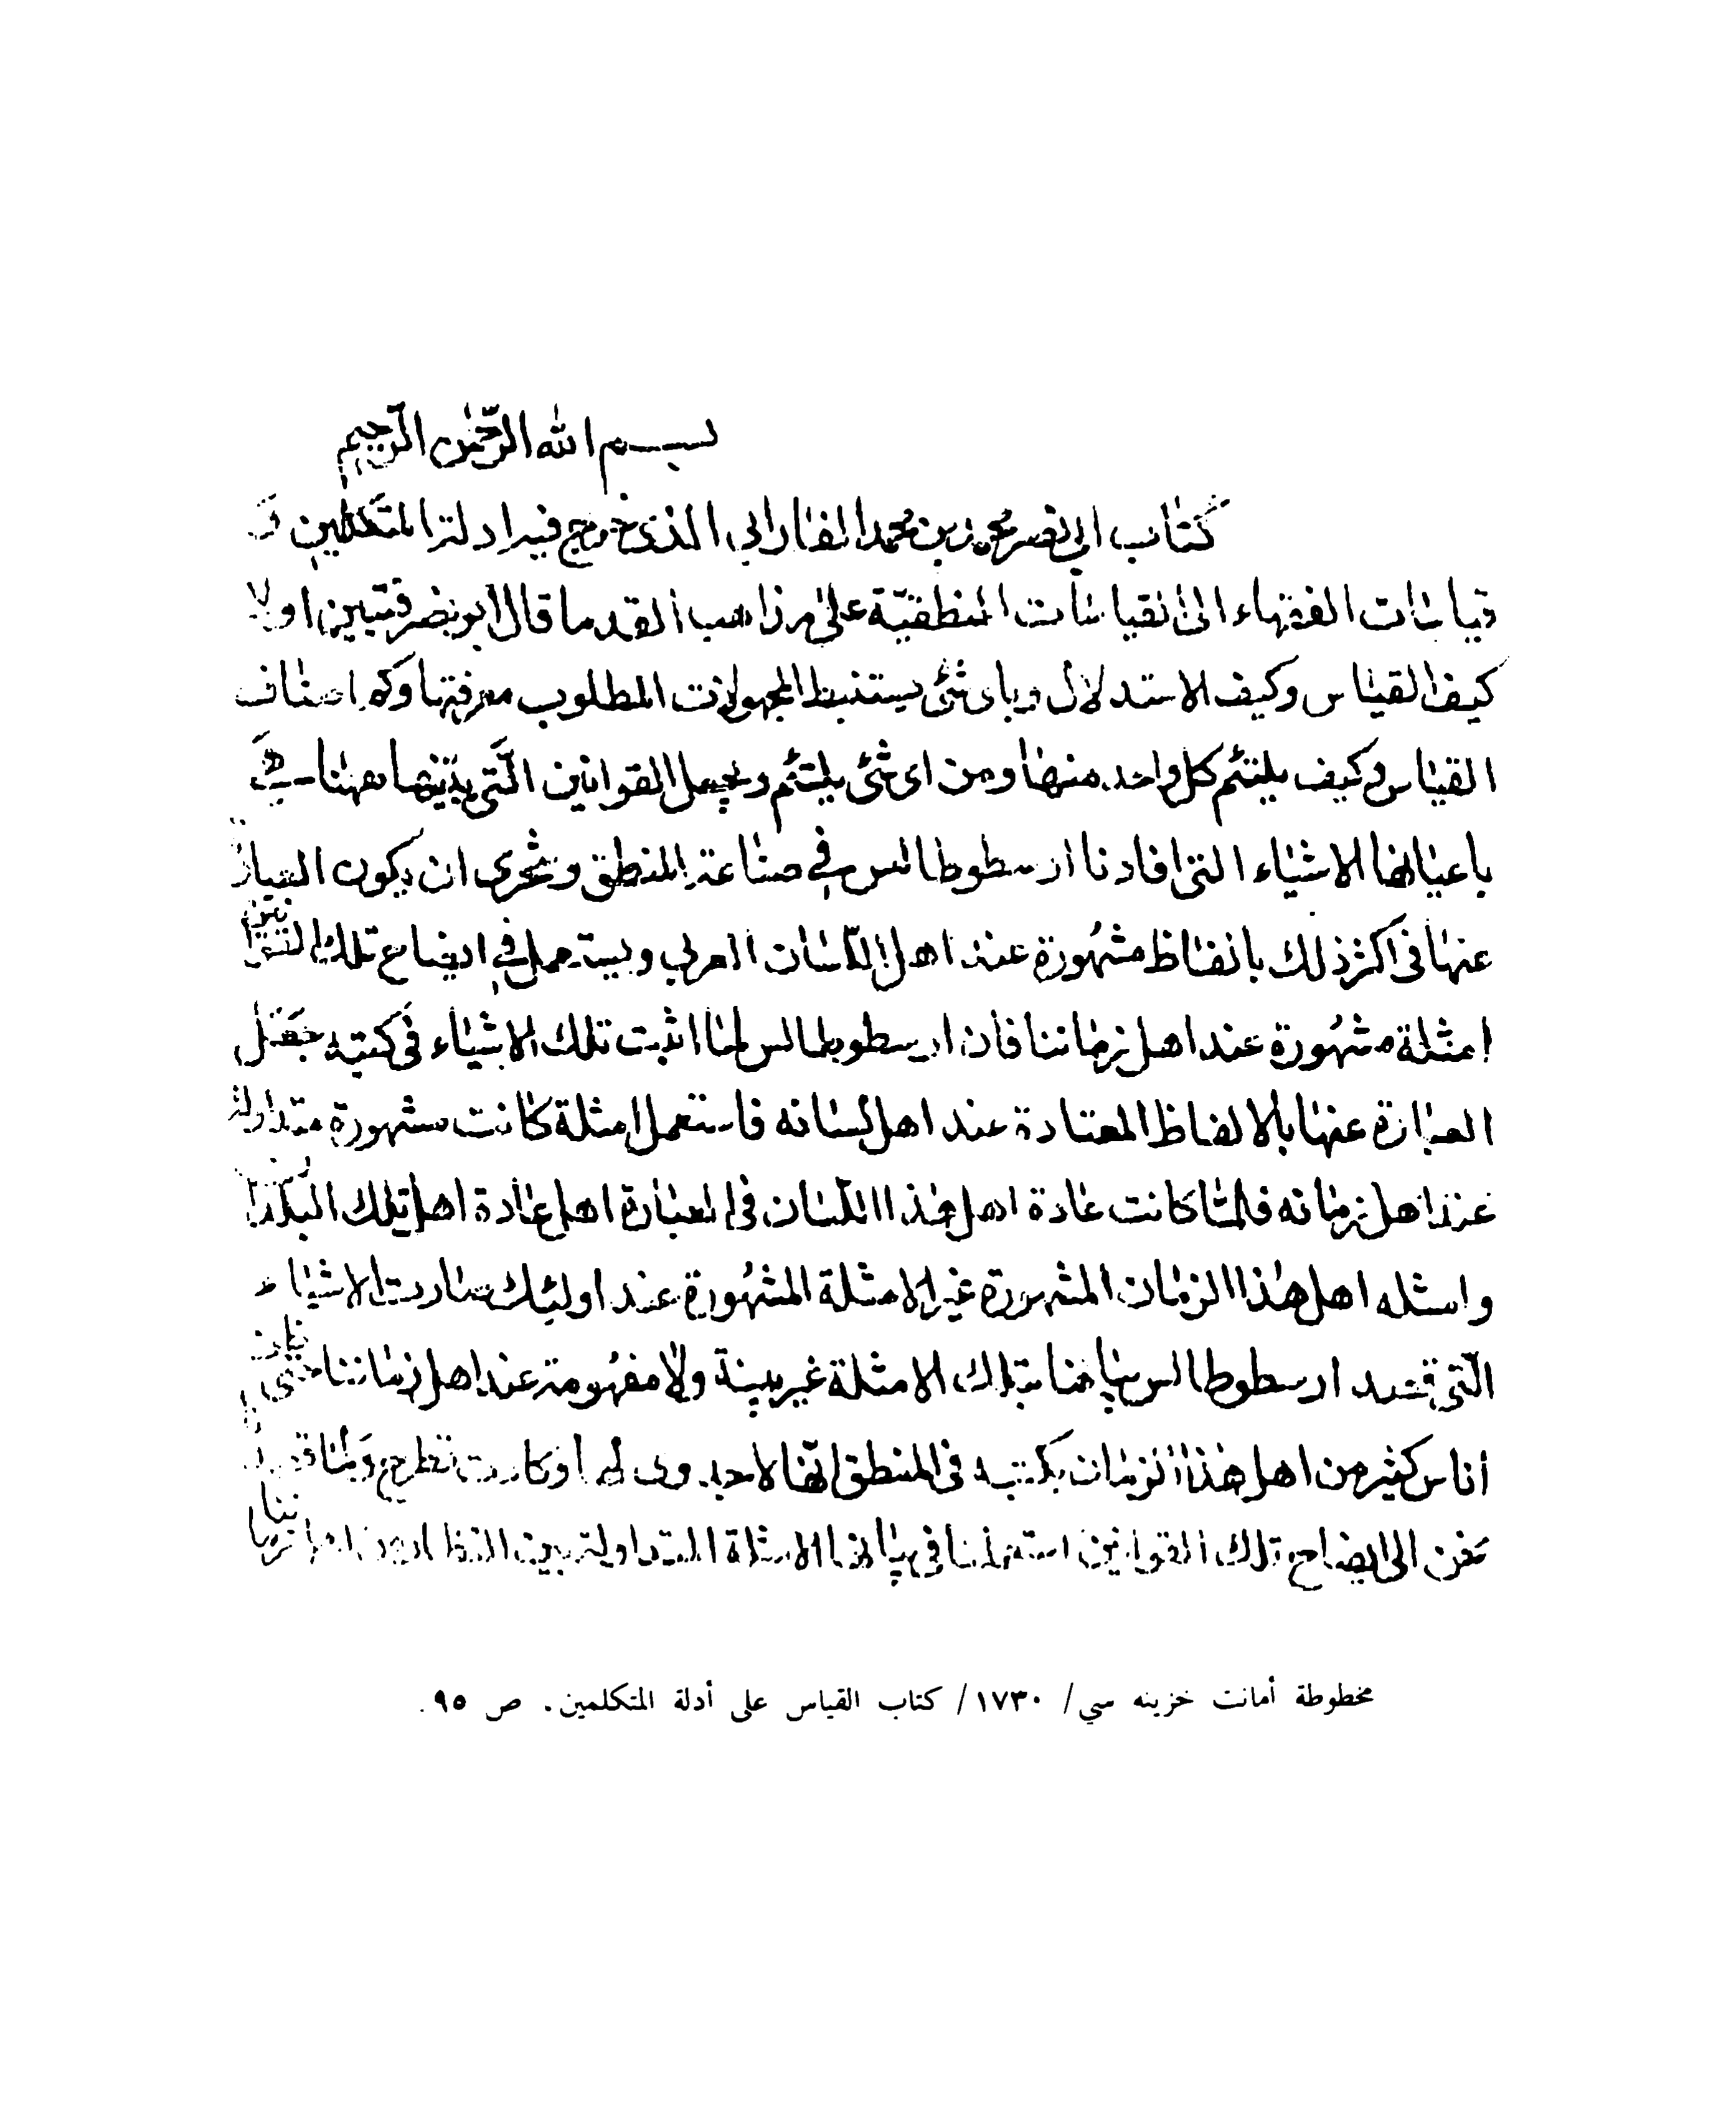 بسم الله الرّحمٰن الرّحيم
كتاب ابي نصر محمد بن محمد الفارابي الذى خرج فيه ادلة المتكلمين و
قياسات الفقهاء الى القياسات المنطقيّة على مذاهب القدما قال ابو نصر فتبين اولا
كيف القياس وكيف الاستدلال وباى شئ يستنبط المجهولات المطلوب معرفتها وكم اصناف
القياس وكيف يلتئم كل واحد منها ومن اى شئ يلتئم ونجعل القوانين الّتى بينها ههنا هى
باعيانها الاشياء التى افادنا ارسطوطالس فى صناعة المنطق ونتحرى ان يكون العبارة
عنها فى اكثر ذلك بالفاظ مشهورة عند اهل اللّسان العربي ويستعمل فى ايضاع تلك القوانين
امثلة مشهورة عند اهل زماننا فان ارسطوطالس لما اثبت تلك الاشياء فى كتبه جعل
العبارة عنها بالالفاظ المعتادة عند اهل لسانه فاستعمل امثلة كانت مشهورة متداولة
عند اهل زمانه فلمّا كانت عادة اهل هذا اللّسان فى العبارة اهل عادة اهل تلك البلدان
وامثله اهل هذا الزمان المشهورة غير الامثلة المشهورة عند اولئك صارت الاشياء
الّتى قصد ارسطوطالس بيانها بتلك الامثلة غير بينة ولا مفهومة عند اهل زماننا حتى
اناس كثير من اهل هذا الزمان بكتبه فى المنطق انّها لا جدوى لها وكادت تطرح ولمّا
نحن الى ايضاح تلك القوانين استعملنا فى بيانها الامثلة المتداولة بين النظار
مخطوطة أمانت خزينه سي / ١٧٣٠ / كتاب القياس على أدلة المتكلمين. ص ٩٥.